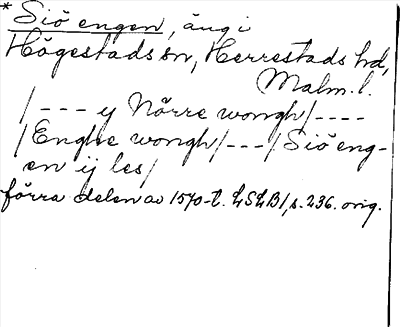 * Siö engen, äng i
Högestads sn, Herrestads hd,
Malm. l.
/--- y Nörre wongh/----
/Enghe wongh/---/Siö eng-
en ij les/
förra delen av 1570-t. LSLB1, s. 236. orig.